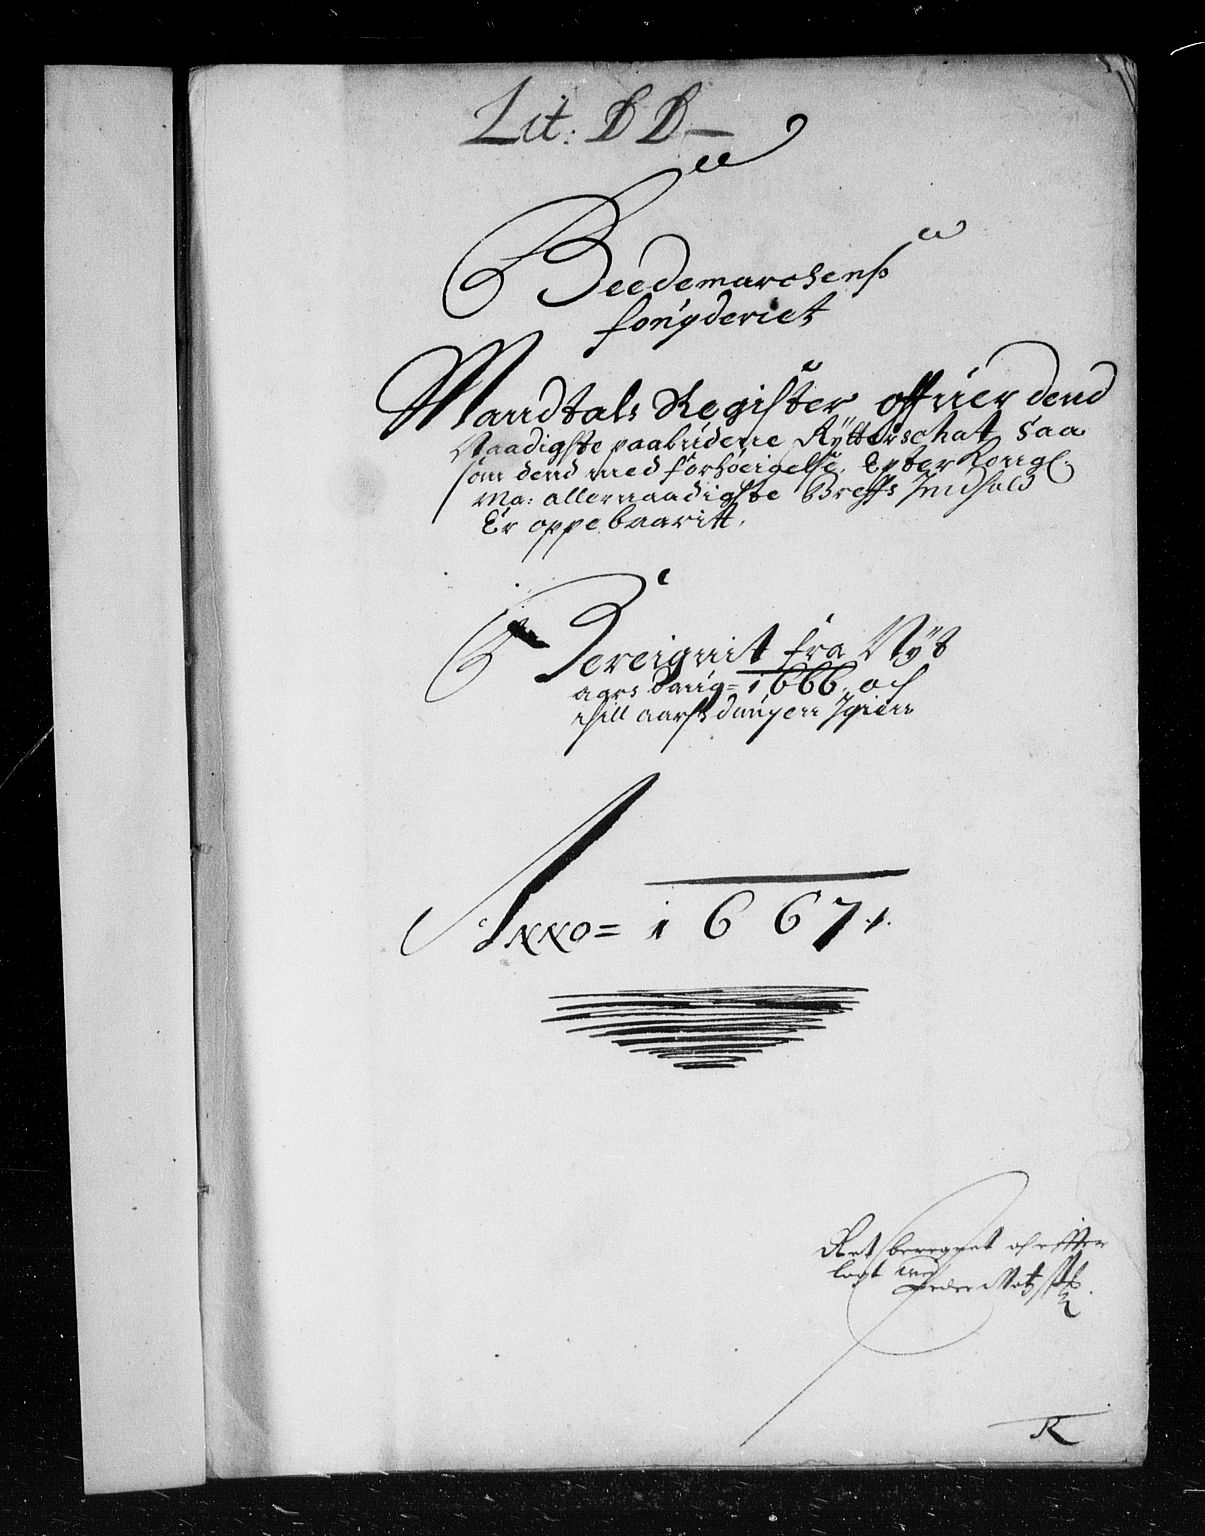 Lit: DD
Heedemarchens
fougderiet
Mandtals Register offuer dend
Naadigste paabudene Rÿtterschat saa
som dend med forhöeigelse, Epter Kongl.
Ma: allernaadigste Breffs Indhold
Er oppebaaritt.
Bereignit fra Nÿt
aars daug = 1666. och
till aarss daugen Igien
ANNO = 1667.
Ret beregnet och effter
lagt
Peder
R